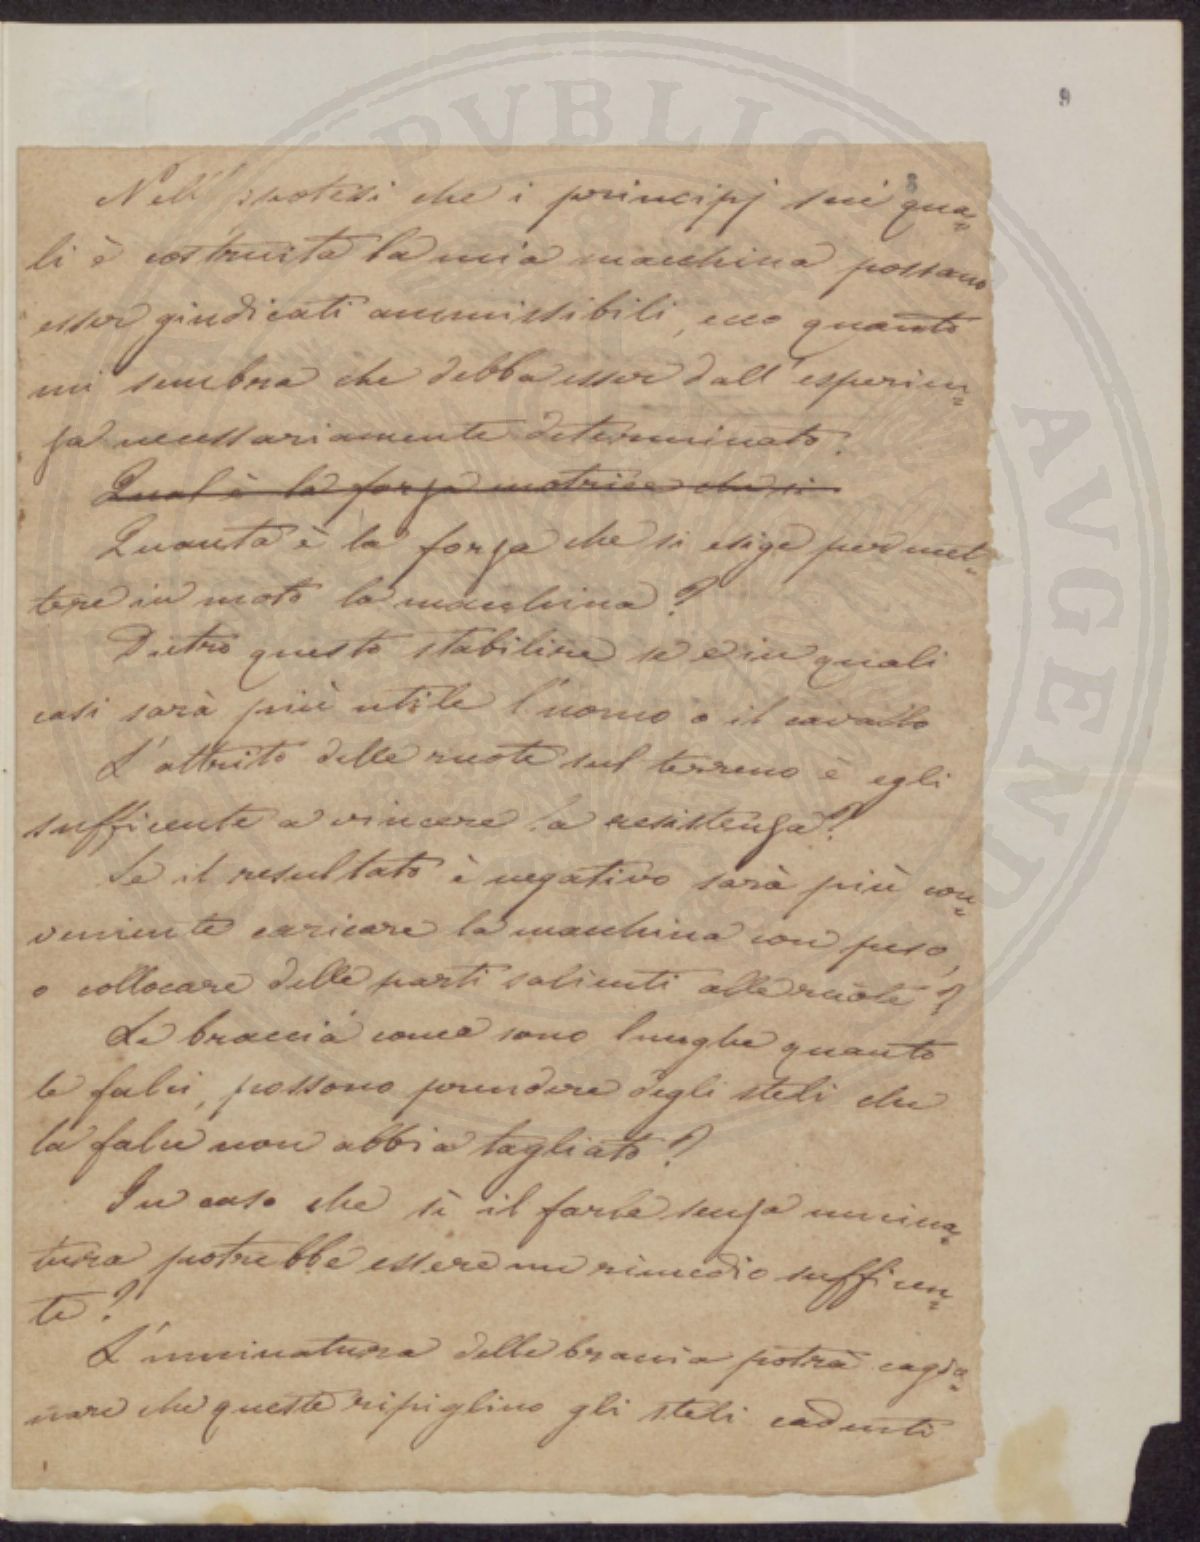 9
8
Nell'ipotesi che i principj sui qua=
li è costruita la mia macchina possano
esser giudicati ammissibili, ecco quanto
mi sembra che debba esser dall'esperien=
za necessariamente determinato.
Qual è la forza motrice che si
Quanta è la forza che si esige per met=
tere in moto la macchina?
Dietro questo stabilire se e in quali
casi sarà più utile l'uomo o il cavallo
L'attrito delle ruote sul terreno è egli
sufficente a vincere la resistenza?
Se il resultato è negativo sarà più con=
veniente caricare la macchina con peso,
o collocare delle parti salienti alle ruote?
Le braccia come sono lunghe quanto
le falci, possono prendere degli steli che
la falce non abbia tagliato?
In caso che sì il farle senza uncina=
tura potrebbe essere un rimedio sufficen=
te?
L'uncinatura delle braccia potrà cagio=
nare che queste ripiglino gli steli cadenti
PVBLIC
AVGEND